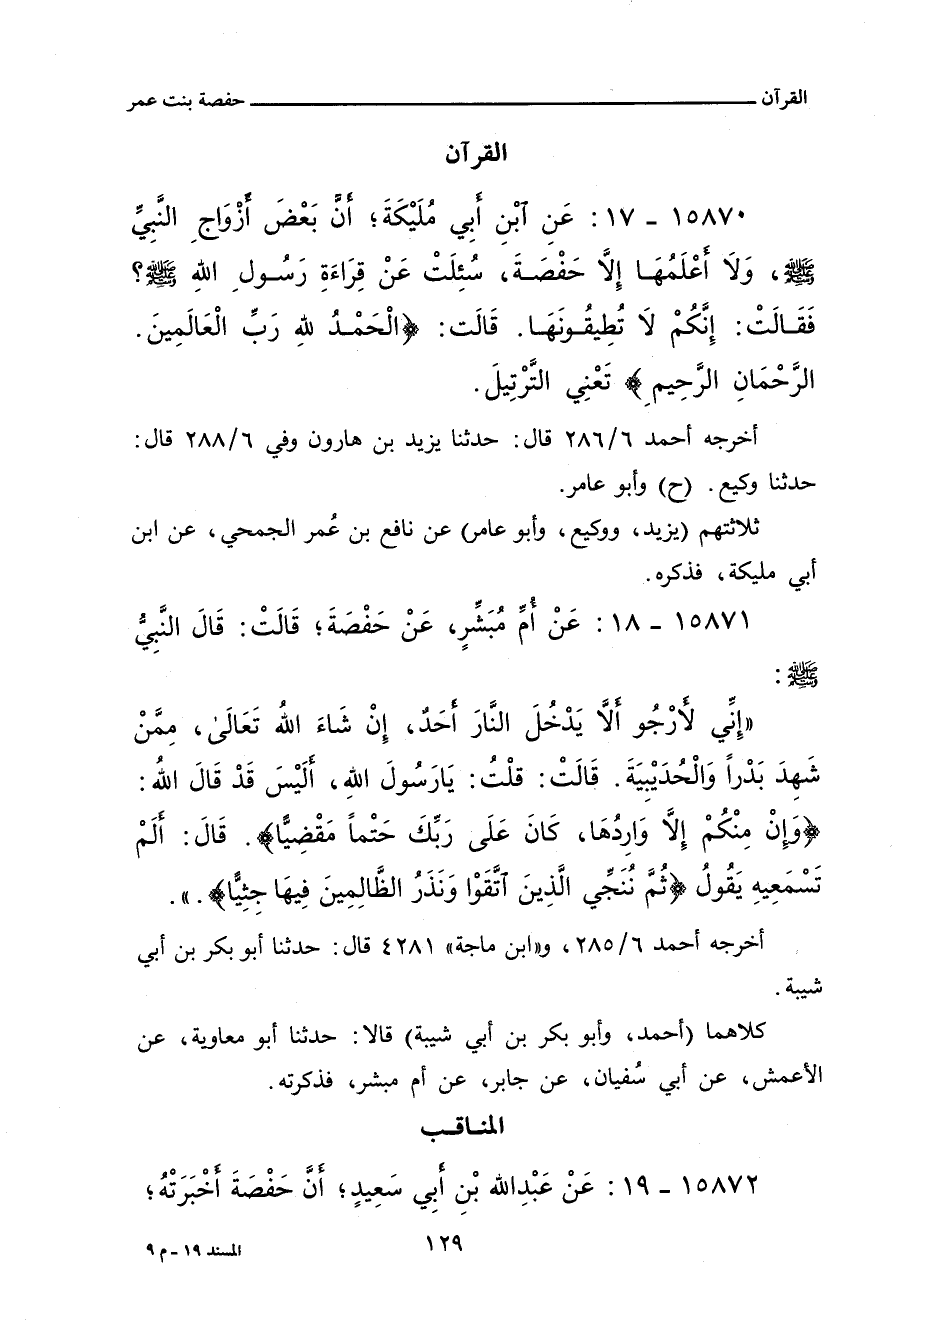 القرآن ــــــــــــــــــــ حفصة بنت عمر
القرآن
١٥٨٧٠ - ١٧ : عَنِ ٱبْنِ أَبِي مُلَيْكَةَ؛ أَنَّ بَعْضَ أَزْوَاجِ النَّبِيِّ
ﷺ، وَلَا أَعْلَمُهَا إِلَّا حَفْصَةَ، سُئِلَتْ عَنْ قِرَاءَةِ رَسُولِ اللهِ ﷺ؟
فَقَالَتْ: إِنَّكُمْ لَا تُطِيقُونَهَا. قَالَت: ﴿الْحَمْدُ للهِ رَبِّ الْعَالَمِينَ.
الرَّحْمَانِ الرَّحِيمِ﴾ تَعْنِي التَّرْتِيلَ.
أخرجه أحمد ٢٨٦/٦ قال: حدثنا يزيد بن هارون وفي ٢٨٨/٦ قال:
حدثنا وكيع. (ح) وأبو عامر.
ثلاثتهم (يزيد، ووكيع، وأبو عامر) عن نافع بن عُمر الجمحي، عن ابن
أبي مليكة، فذكره.
١٥٨٧١ - ١٨ : عَنْ أُمِّ مُبَشِّرٍ، عَنْ حَفْصَةَ؛ قَالَتْ: قَالَ النَّبِيُّ
ﷺ:
«إِنِّي لَأَرْجُو أَلَّا يَدْخُلَ النَّارَ أَحَدٌ، إِنْ شَاءَ اللهُ تَعَالَىٰ، مِمَّنْ
شَهِدَ بَدْراً وَالْحُدَيْبِيَةَ. قَالَتْ: قلْتُ: يَارَسُولَ اللهِ، أَلَيْسَ قَدْ قَالَ اللهُ:
﴿وَإِنْ مِنْكُمْ إِلَّا وَارِدُهَا، كَانَ عَلَى رَبِّكَ حَتْماً مَقْضِيًّا﴾. قَالَ: أَلَمْ
تَسْمَعِيهِ يَقُولُ ﴿ثُمَّ نُنَجِّي الَّذِينَ ٱتَّقَوْا وَنَذَرُ الظَّالِمِينَ فِيهَا جِثِيًّا﴾.».
أخرجه أحمد ٢٨٥/٦، و«ابن ماجة» ٤٢٨١ قال: حدثنا أبو بكر بن أبي
شيبة.
كلاهما (أحمد، وأبو بكر بن أبي شيبة) قالا: حدثنا أبو معاوية، عن
الأعمش، عن أبي سُفيان، عن جابر، عن أم مبشر، فذكرته.
المناقب
١٥٨٧٢ - ١٩ : عَنْ عَبْدِالله بْنِ أَبِي سَعِيدٍ؛ أَنَّ حَفْصَةَ أَخْبَرَتْهُ؛
١٢٩
المسند ١٩ - م ٩